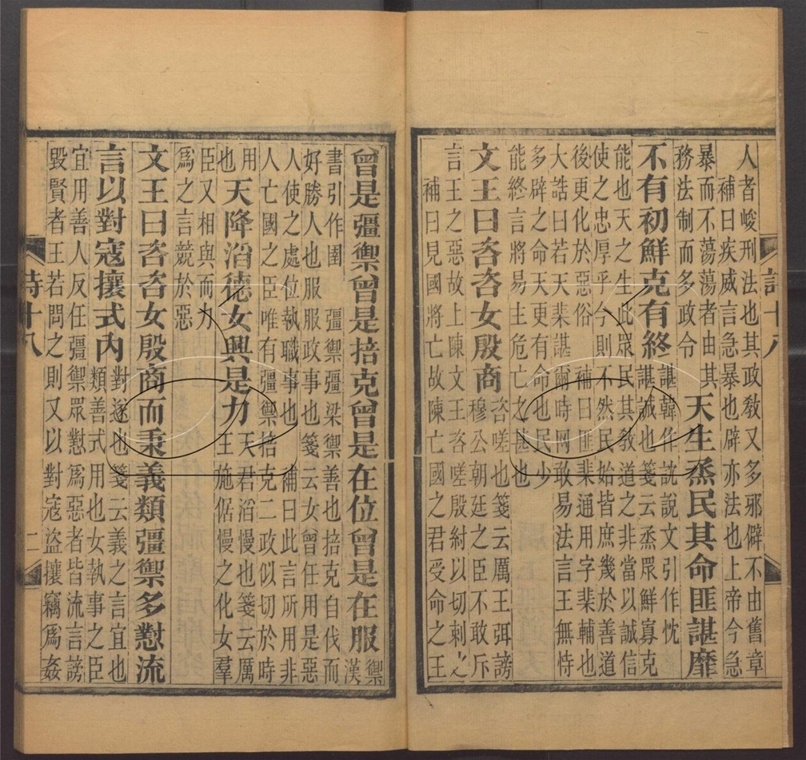 人者峻刑法也其政敎又多邪僻不由舊章
補曰疾威言急暴也辟亦法也上帝今急
暴而不蕩蕩者由其
務法制而多政令
天生烝民其命匪諶靡
不有初鮮克有終
諶韓作訦說文引作忱
諶誠也箋云烝眾鮮寡克
能也天之生此眾民其敎道之非當以誠信
使之忠厚乎今則不然民始皆庶幾於善道
後更化於惡俗
補曰匪棐通用字棐輔也
大誥曰若天棐諶爾時罔敢易法言王無恃
多辟之命天更有命也民少
能終言將易主危亡之甚也
文王曰咨咨女殷商
咨嗟也箋云厲王弭謗
穆公朝廷之臣不敢斥
言王之惡故上陳文王咨嗟殷紂以切刺之
補曰見國將亡故陳亡國之君受命之王
詩十八
曾是彊禦曾是掊克曾是在位曾是在服
禦漢
書引作圉
彊禦彊梁禦善也掊克自伐而
好勝人也服服政事也箋云女曾任用是惡
人使之處位執職事也
補曰此言所用非
人亡國之臣唯有彊禦掊克二政似切於時
用
也
天降滔德女興是力
天君滔慢也箋云厲
王施倨慢之化女羣
臣又相與而力
爲之言競於惡
文王曰咨咨女殷商而秉義類彊禦多懟流
言以對寇攘式內
對遂也箋云義之言宜也
類善式用也女執事之臣
宜用善人反任彊禦眾懟爲惡者皆流言謗
毀賢者王若問之則又以對寇盜攘竊爲姦
詩十八
二